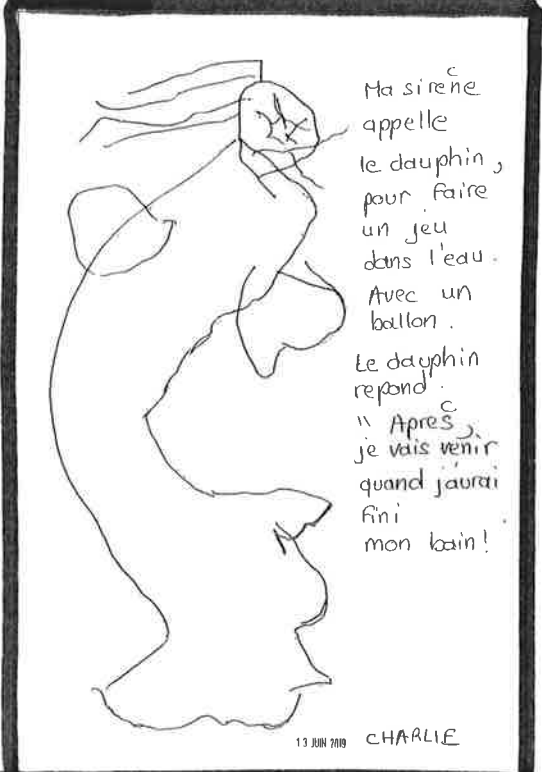 Ma sirène
appelle
le dauphin,
pour faire
un jeu
dans l'eau.
Avec un
ballon.
Le dauphin
repond.
" Après,
je vais venir
quand j'aurai
fini
mon bain!
13 JUIN 2019 CHARLIE